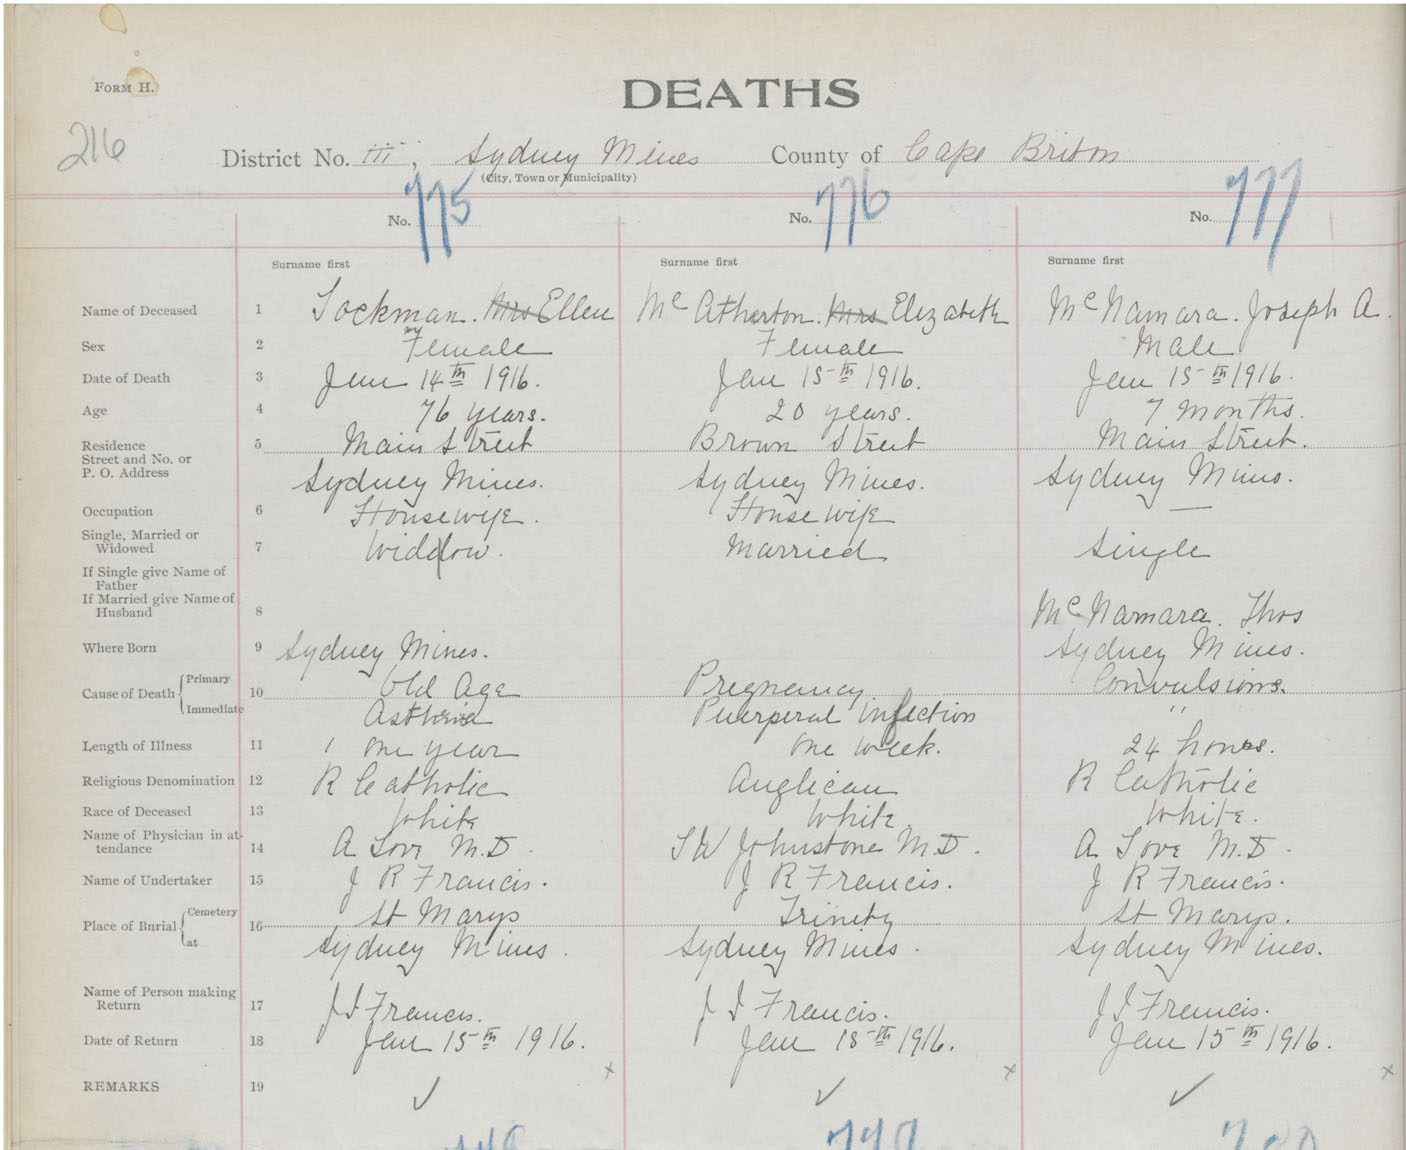 FORM H.
DEATHS
216
District No. iii, Sydney Mines County of Cape Briton
(City, Town or Municipality)
No. 775 No. 776 No. 777
Surname first Surname first Surname first
Name of Deceased 1 Jockman. Mrs Ellen McAtherton. Mrs Elizabeth McNamara. Joseph A.
Sex 2 Female Female Male
Date of Death 3 Jan 14th 1916. Jan 15th 1916. Jan 15th 1916.
Age 4 76 years. 20 years. 7 months.
Residence 5 Main Street Brown Street Main Street.
Street and No. or
P. O. Address Sydney Mines. Sydney Mines. Sydney Mines.
Occupation 6 Housewife. Housewife —
Single, Married or
Widowed 7 Widow. Married Single
If Single give Name of
Father
If Married give Name of
Husband 8 McNamara. Thos
Where Born 9 Sydney Mines. Sydney Mines.
Cause of Death { Primary 10 Old Age Pregnancy Convulsions.
Immediate Asthenia Puerperal Infection "
Length of Illness 11 1 one year one week. 24 hours.
Religious Denomination 12 R Catholic Anglican R Catholic
Race of Deceased 13 White White. White.
Name of Physician in at-
tendance 14 A Love M.D. T W Johnstone M.D. A Love M.D.
Name of Undertaker 15 J R Francis. J R Francis. J R Francis.
Place of Burial { Cemetery 16 St Marys Trinity St Marys.
at Sydney Mines. Sydney Mines. Sydney Mines.
Name of Person making
Return 17 J I Francis. J I Francis. J I Francis.
Date of Return 18 Jan 15th 1916. Jan 18th 1916. Jan 15th 1916.
REMARKS 19 ✓ x ✓ x ✓ x